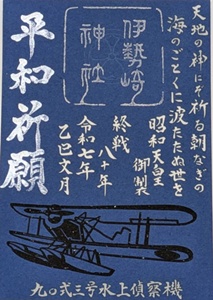 天地の神にぞ祈る朝なぎの
海のごとくに波たたぬ世を
昭和天皇
御製
伊勢崎
神社
終戦
八十年
令和七年
乙巳文月
平和祈願
九〇式二号水上偵察機